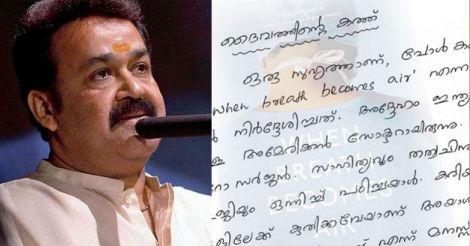 ദൈവത്തിന്റെ കത്ത്
ഒരു സുഹൃത്താണ്, പോൾ ക
when breath becomes air' എന്ന
നിർദ്ദേശിച്ചത്. അദ്ദേഹം ഇന്ത്യ
ള അമേരിക്കൻ ഡോക്ടറായിരുന്നു.
റോ സർജൻ. സാഹിത്യവും തത്വചിന്ത
ജിയും ഒന്നിച്ച് പഠിച്ചയാൾ. കരിയ
ിലേക്ക് കുതിക്കവേയാണ് അയാ
എന്ന് മനസ്സ
WHEN
BREATH
BECOMES
AIR